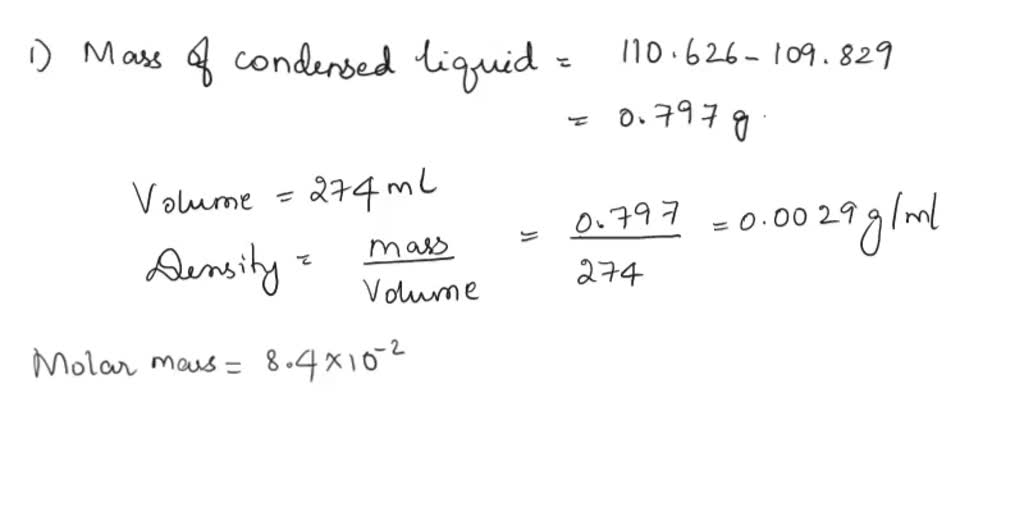 1) Mass of condensed liquid = 110.626 - 109.829
= 0.797 g.
Volume = 274 mL
Density = mass / Volume = 0.797 / 274 = 0.0029 g/ml
Molar mass = 8.4 × 10⁻²